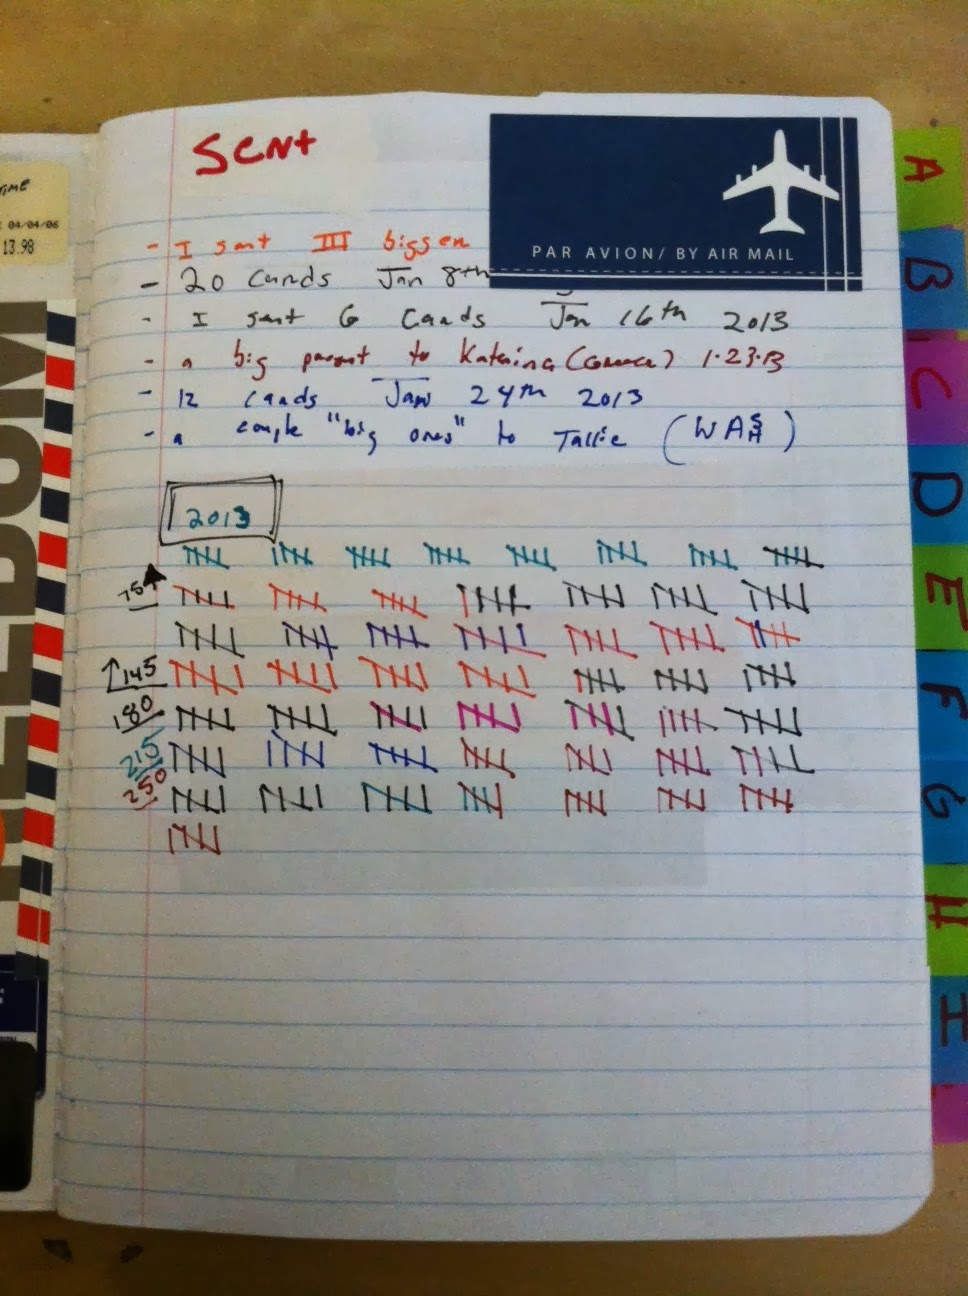 Sent
PAR AVION/ BY AIR MAIL
- I sent III bigger
- 20 Cards Jan 8th
- I sent 6 Cards Jan 16th 2013
- a big parent to Katerina (Greece) 1·23·13
- 12 cards Jan 24th 2013
- a couple "big ones" to Tallie (WASH)
2013
75
145
180
215
250
04/04/06
13.98
A
B
C
D
E
F
G
H
I